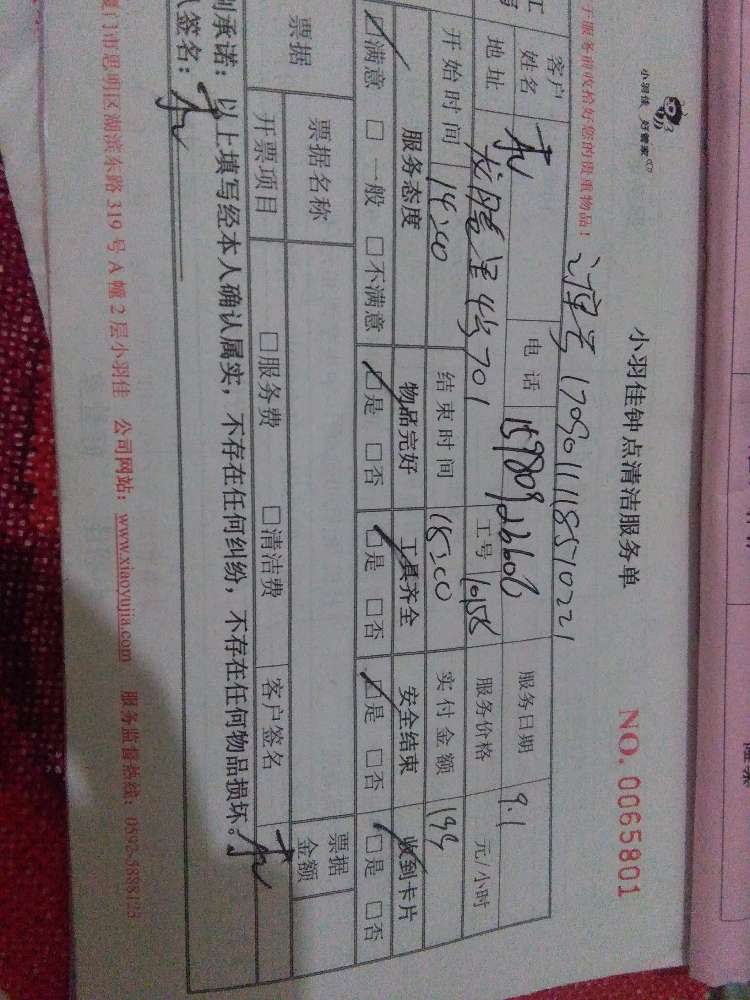 小羽佳 好管家
小羽佳钟点清洁服务单
NO. 0065801
于服务前收拾好您的贵重物品！
订单号 170901118510221
客户姓名 电话 服务日期 9.1
地址 龙腾里46号701 工号 服务价格 元/小时
开始时间 14:00 结束时间 18:00 实付金额 199
服务态度 物品完好 工具齐全 安全结束 收到卡片
☑满意 □一般 □不满意 ☑是 □否 ☑是 □否 ☑是 □否 ☑是 □否
票据 票据名称 票据金额
开票项目 □服务费 □清洁费 客户签名
承诺：以上填写经本人确认属实，不存在任何纠纷，不存在任何物品损坏。
签名：
厦门市思明区湖滨东路 319 号 A 幢 2 层小羽佳 公司网站：www.xiaoyujia.com 服务监督热线：0592-5888125